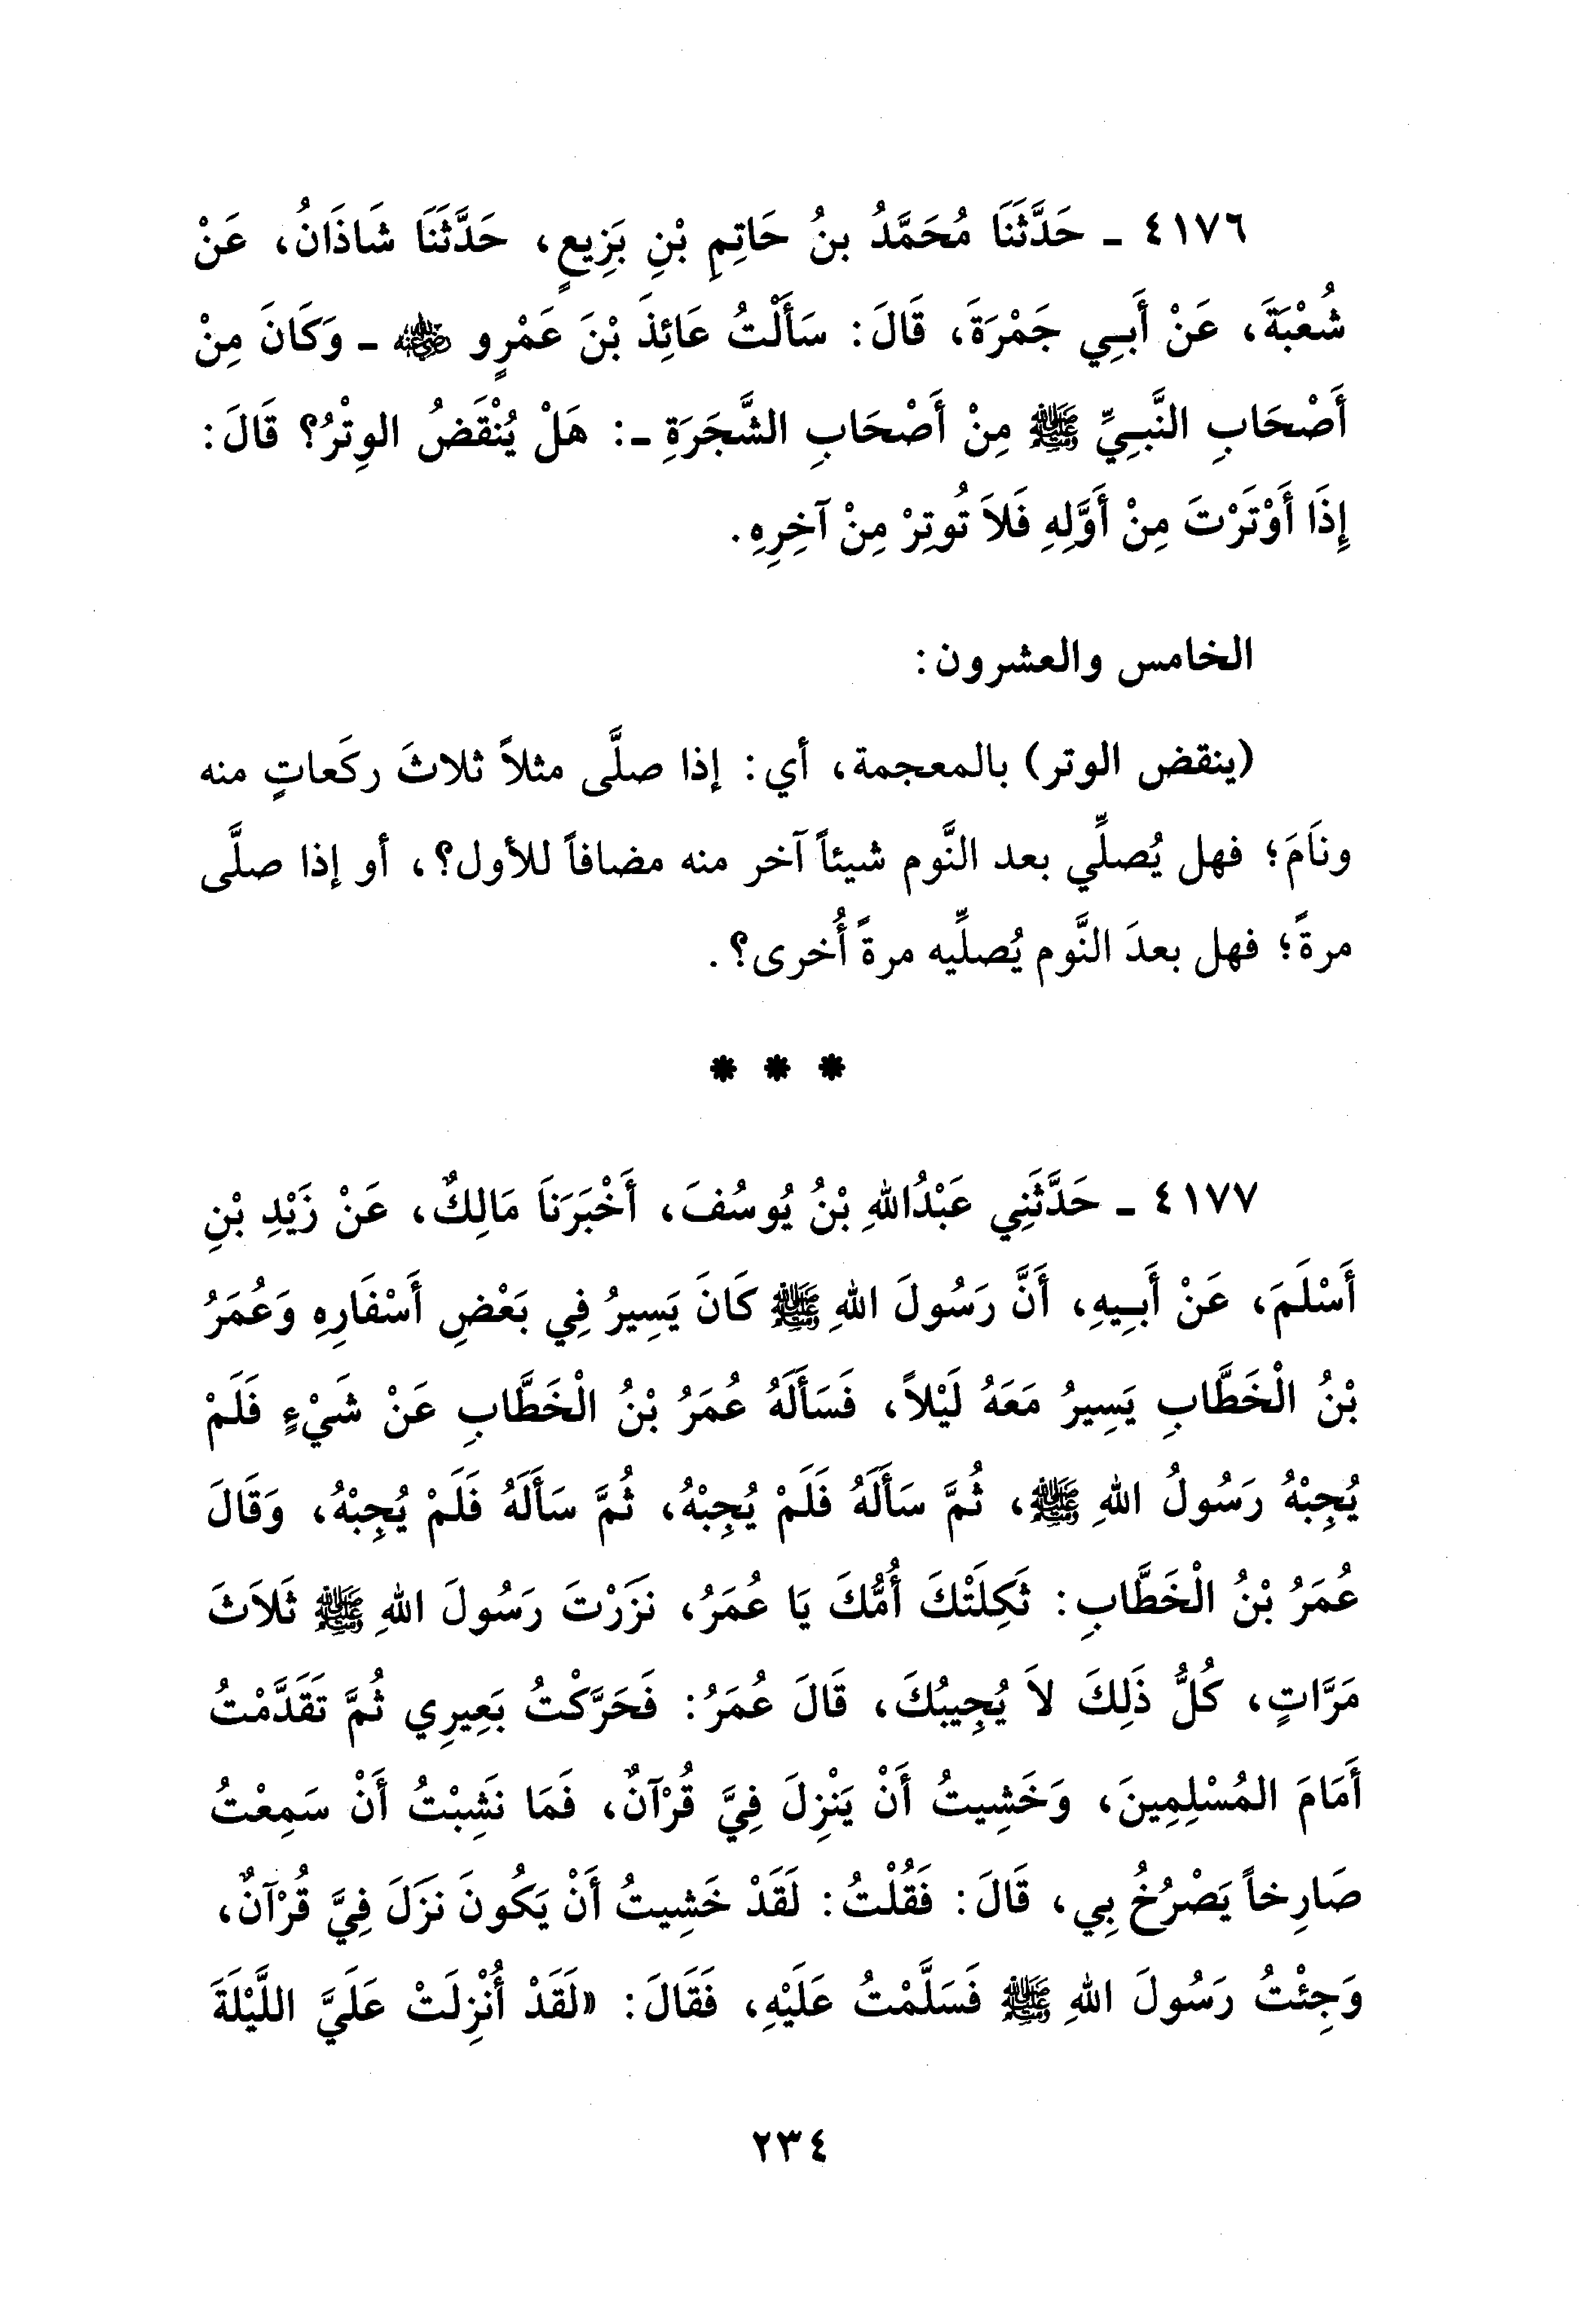 ٤١٧٦ ـ حَدَّثَنَا مُحَمَّدُ بنُ حَاتِمِ بْنِ بَزِيعٍ، حَدَّثَنَا شَاذَانُ، عَنْ
شُعْبَةَ، عَنْ أَبِي جَمْرَةَ، قَالَ: سَأَلْتُ عَائِذَ بْنَ عَمْرٍو رضي الله عنه ـ وَكَانَ مِنْ
أَصْحَابِ النَّبِيِّ ﷺ مِنْ أَصْحَابِ الشَّجَرَةِ ـ: هَلْ يُنْقَضُ الوِتْرُ؟ قَالَ:
إِذَا أَوْتَرْتَ مِنْ أَوَّلِهِ فَلاَ تُوتِرْ مِنْ آخِرِهِ.
الخامس والعشرون:
(ينقض الوتر) بالمعجمة، أي: إذا صلَّى مثلاً ثلاثَ ركَعاتٍ منه
ونَامَ؛ فهل يُصلِّي بعد النَّوم شيئاً آخر منه مضافاً للأول؟، أو إذا صلَّى
مرةً؛ فهل بعدَ النَّوم يُصلِّيه مرةً أُخرى؟.
* * *
٤١٧٧ ـ حَدَّثَنِي عَبْدُاللهِ بْنُ يُوسُفَ، أَخْبَرَنَا مَالِكٌ، عَنْ زَيْدِ بْنِ
أَسْلَمَ، عَنْ أَبِيهِ، أَنَّ رَسُولَ اللهِ ﷺ كَانَ يَسِيرُ فِي بَعْضِ أَسْفَارِهِ وَعُمَرُ
بْنُ الْخَطَّابِ يَسِيرُ مَعَهُ لَيْلاً، فَسَأَلَهُ عُمَرُ بْنُ الْخَطَّابِ عَنْ شَيْءٍ فَلَمْ
يُجِبْهُ رَسُولُ اللهِ ﷺ، ثُمَّ سَأَلَهُ فَلَمْ يُجِبْهُ، ثُمَّ سَأَلَهُ فَلَمْ يُجِبْهُ، وَقَالَ
عُمَرُ بْنُ الْخَطَّابِ: ثَكِلَتْكَ أُمُّكَ يَا عُمَرُ، نَزَرْتَ رَسُولَ اللهِ ﷺ ثَلاَثَ
مَرَّاتٍ، كُلُّ ذَلِكَ لاَ يُجِيبُكَ، قَالَ عُمَرُ: فَحَرَّكْتُ بَعِيرِي ثُمَّ تَقَدَّمْتُ
أَمَامَ المُسْلِمِينَ، وَخَشِيتُ أَنْ يَنْزِلَ فِيَّ قُرْآنٌ، فَمَا نَشِبْتُ أَنْ سَمِعْتُ
صَارِخاً يَصْرُخُ بِي، قَالَ: فَقُلْتُ: لَقَدْ خَشِيتُ أَنْ يَكُونَ نَزَلَ فِيَّ قُرْآنٌ،
وَجِئْتُ رَسُولَ اللهِ ﷺ فَسَلَّمْتُ عَلَيْهِ، فَقَالَ: «لَقَدْ أُنْزِلَتْ عَلَيَّ اللَّيْلَةَ
٢٣٤